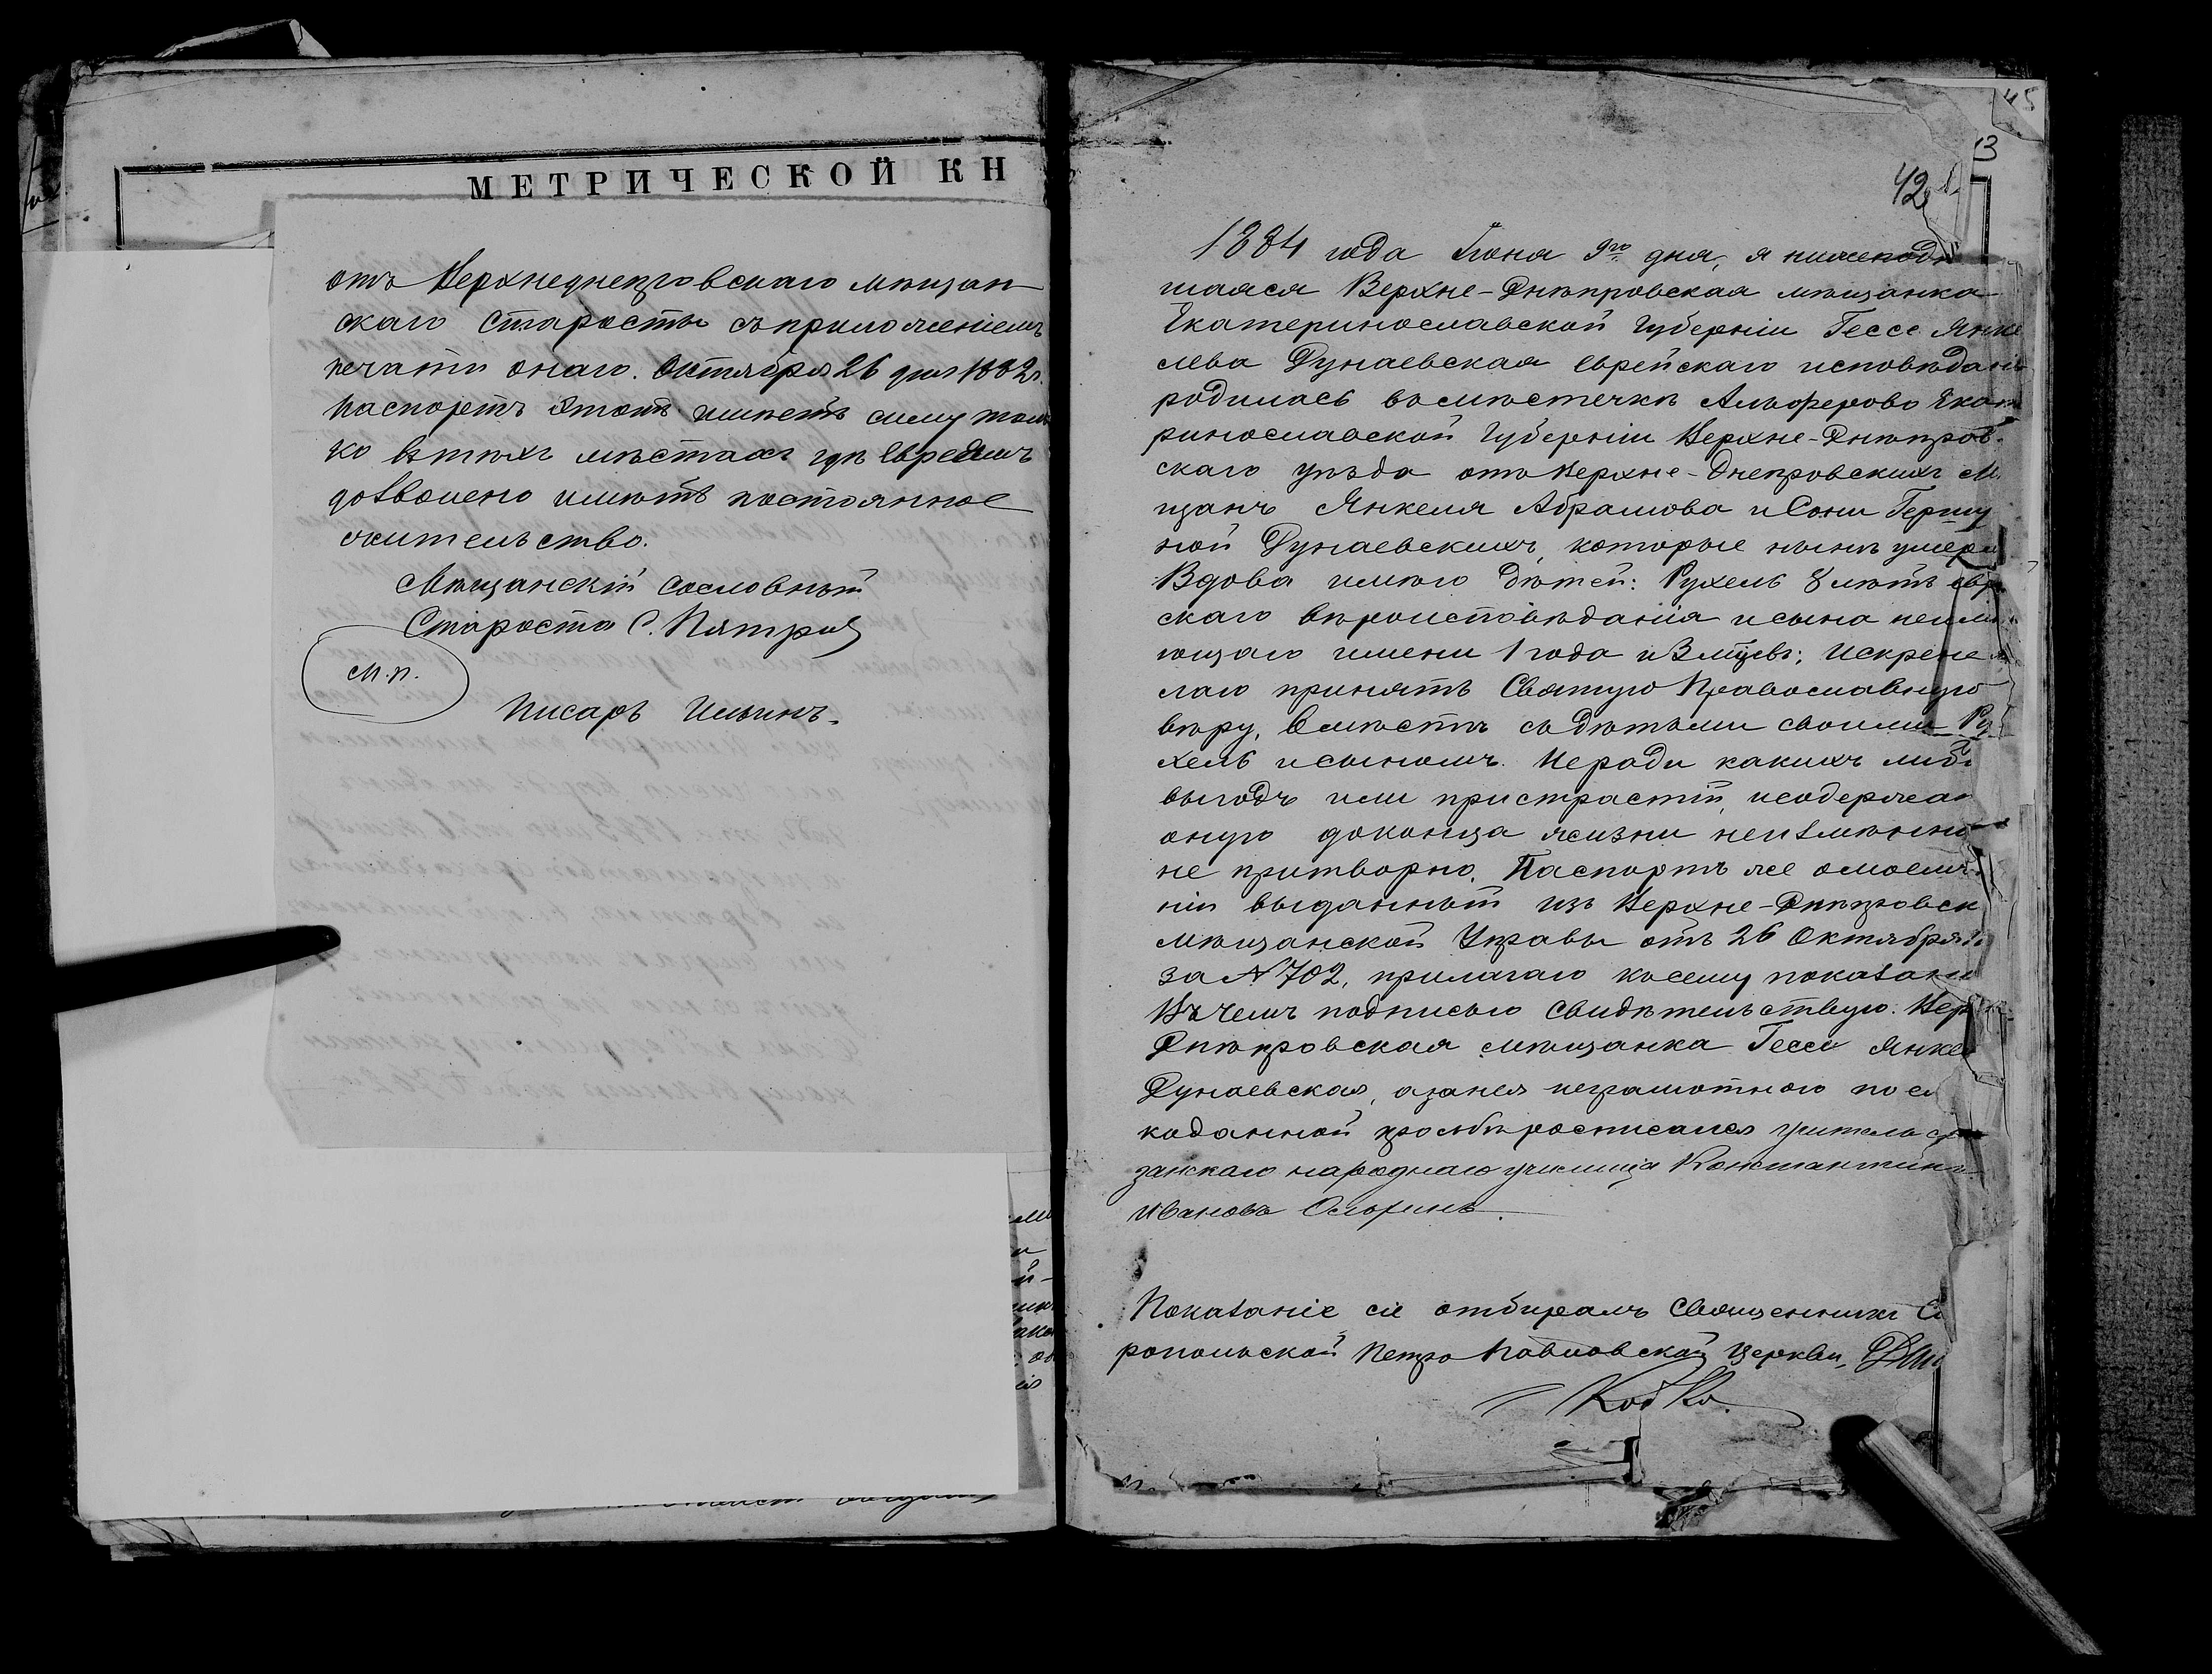 МЕТРИЧЕСКОЙ КН
отъ Верхнеднепровскаго мѣщан
скаго Старосты съ приложеніемъ
печати онаго. Октября 26 дня 1882 г.
Паспортъ Этотъ имѣетъ силу толь
ко в тѣхъ мѣстахъ гдѣ Евреямъ
дозволено имѣть постоянное
жительство.
Мѣщанскій Сословный
Староста С.
М.П.
Писарь Ильинъ.
45
13
42
1884 года Іюня 9го дня, я нижепод
шаяся Верхне-Днѣпровская мѣщанка
Екатеринославской Губерніи Гессе Янке
лева Дунаевская Еврейскаго исповѣдані
родилась въ мѣстечкѣ Альферово Екат
ринославской Губерніи Верхне-Днѣпров
скаго уѣзда отъ Верхне-Днепровскихъ М
щанъ Янкеля Абрамова и Сони Герш
ной Дунаевскихъ, которые нынѣ умер
Вдова имѣю дѣтей: Рухель 8 лѣтъ евр
скаго вѣроисповѣданія и сына неим
ющаго имени 1 года и 3 мѣцевъ; Искрене
лаю принять Святую Православную
вѣру, вмѣстѣ съ дѣтьми своими Ру
хель и сыномъ. Не ради какихъ либ
выгодъ или пристрастій, и содержа
оную до конца жизни неизмѣнно
не притворно. Паспортъ же о моемъ
ніи выданный изъ Верхне-Днѣпровск
мѣщанской Управы отъ 26 Октября
за № 702, прилагаю къ сему показани
Въ чемъ подписью Свидѣтельствую. Вер
Днѣпровская мѣщанка Гессе Янке
Дунаевская, а за нея неграмотною по е
ко данной прозьбѣ росписался учитель
занскаго народнаго училища Константинъ
Ивановъ
Показаніе сіе отбиралъ Священникъ С
ропольской Петро Павловской Церкви,